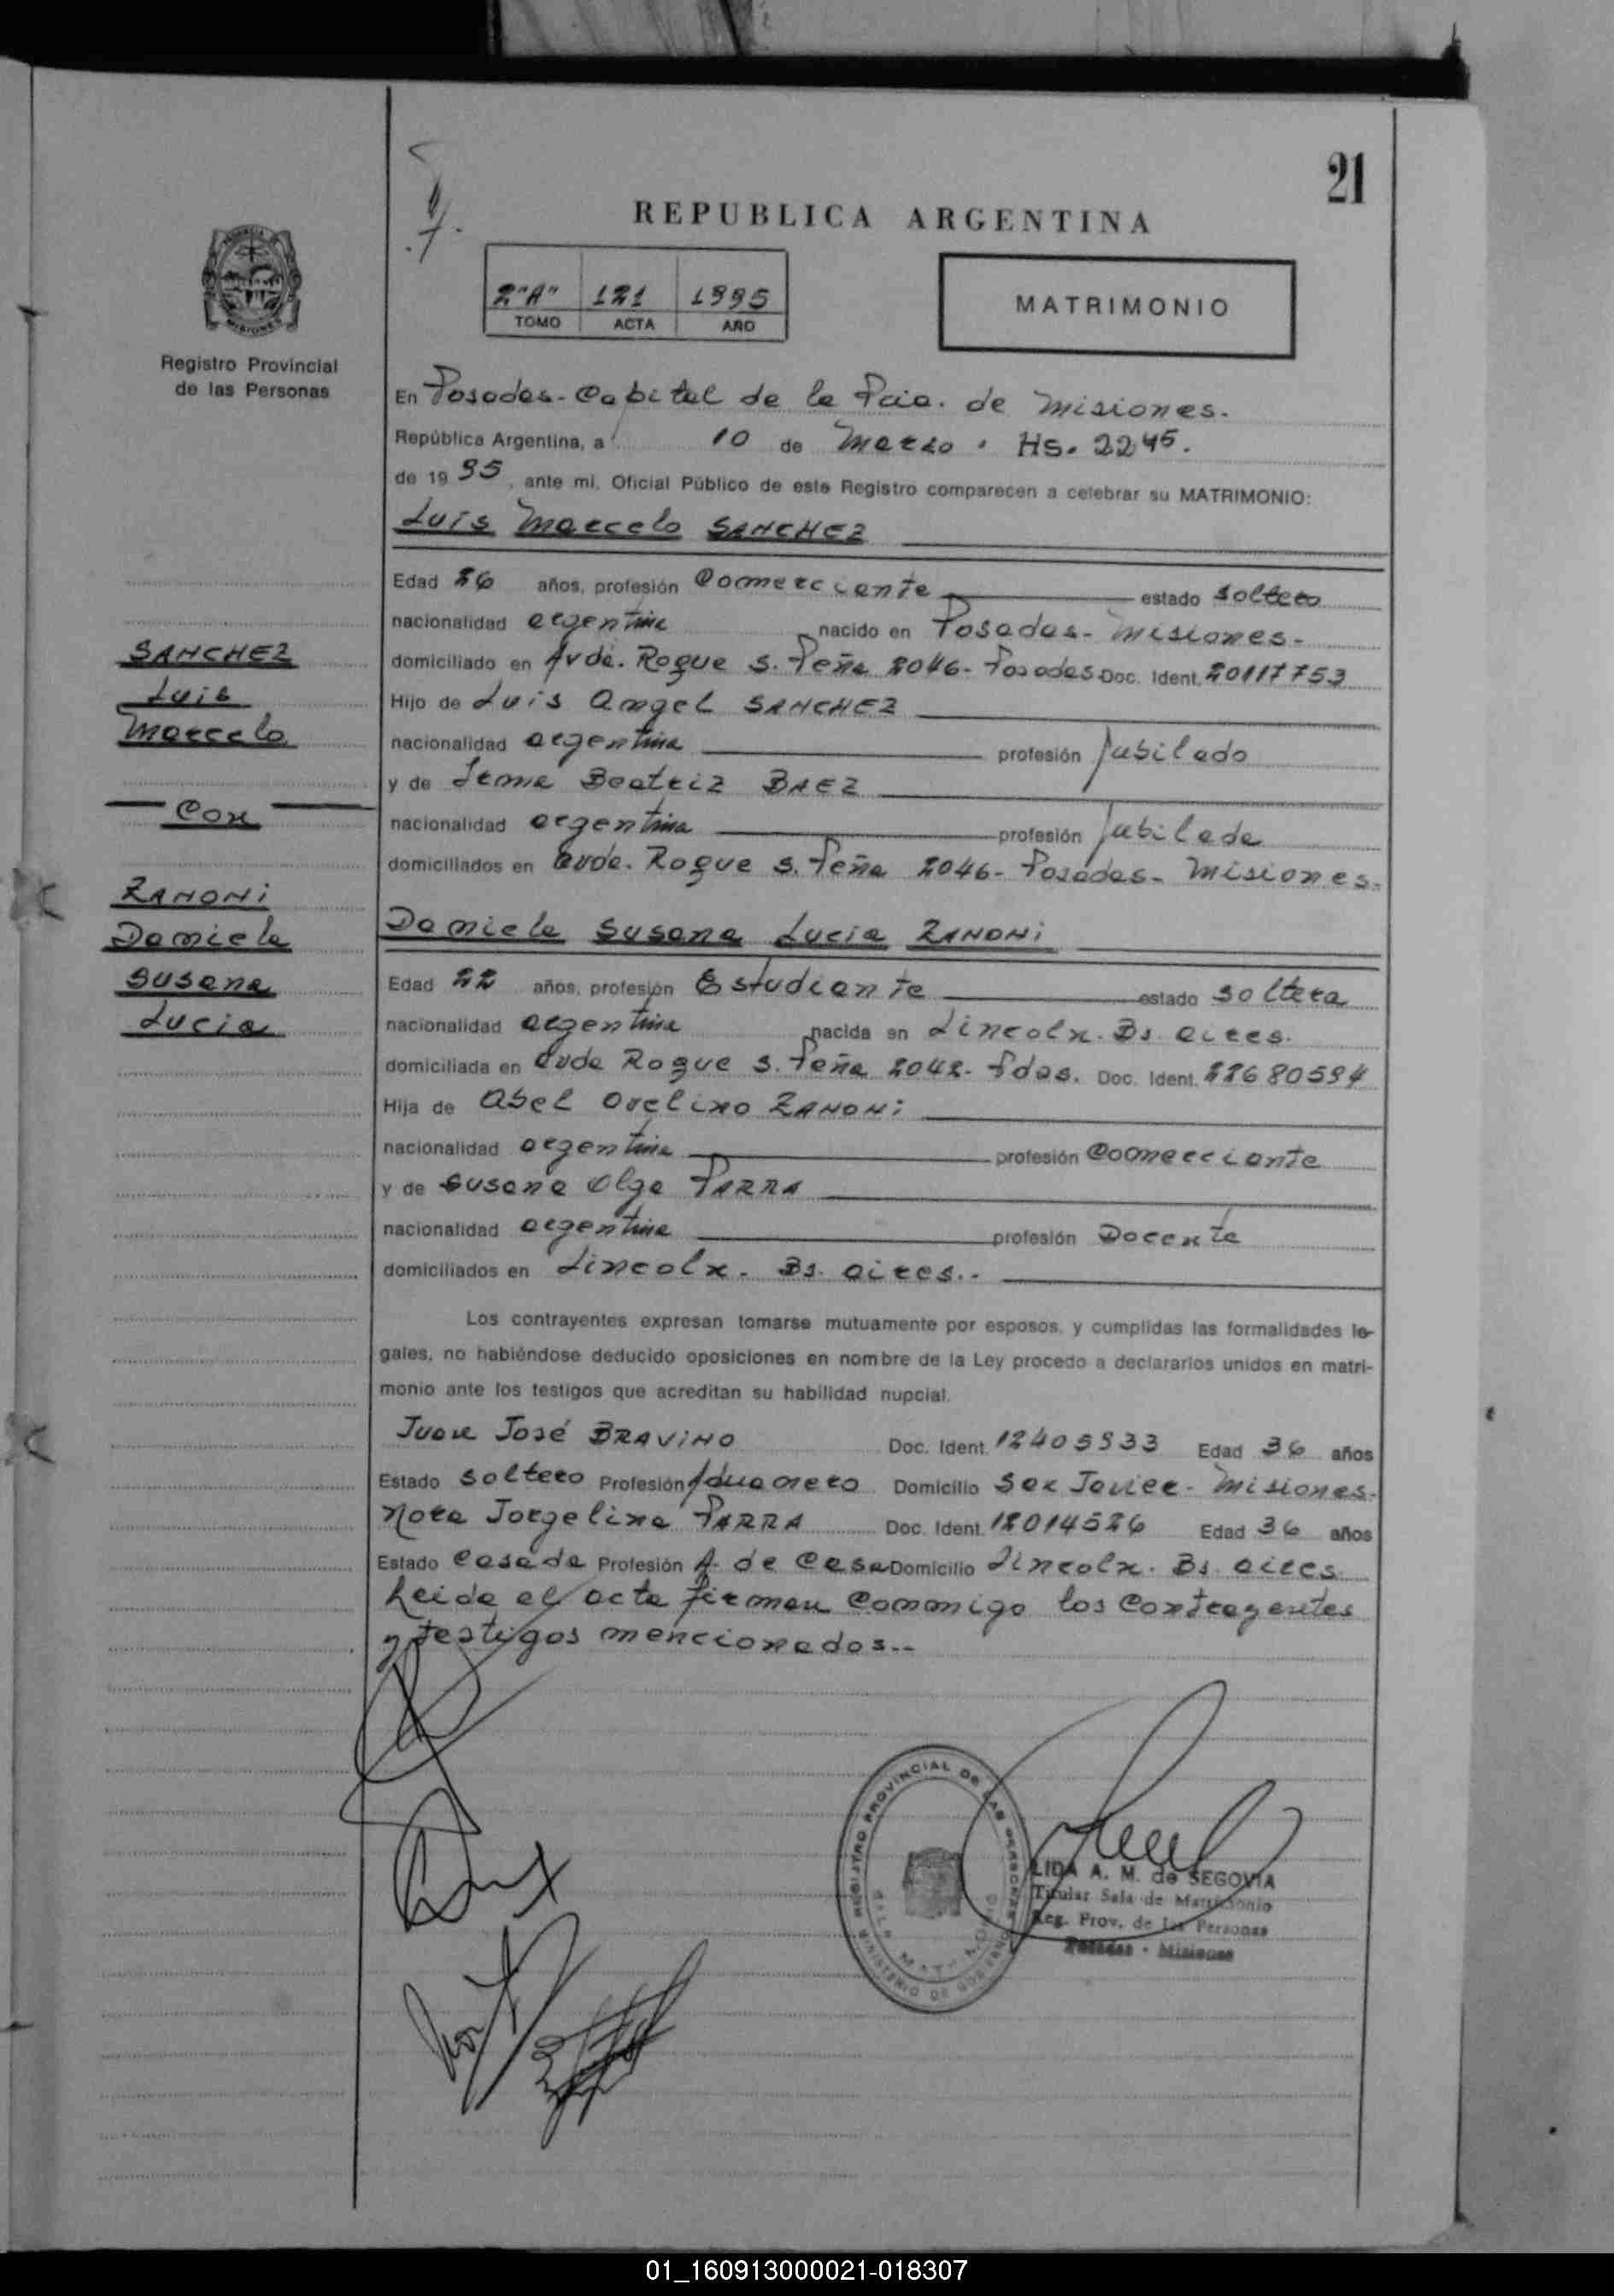 21
REPUBLICA ARGENTINA
2"A" 121 1995
TOMO ACTA AÑO
MATRIMONIO
MISIONES
Registro Provincial
de las Personas
En Posadas - Capital de la Pcia. de Misiones.
República Argentina, a 10 de Marzo. Hs. 2245.
de 1995, ante mi, Oficial Público de este Registro comparecen a celebrar su MATRIMONIO:
Luis Marcelo SANCHEZ
Edad 26 años, profesión Comerciante estado soltero
nacionalidad argentina nacido en Posadas - Misiones -
domiciliado en Avda. Roque S. Peña 2046 - Posadas Doc. Ident. 20117753
Hijo de Luis Angel SANCHEZ
nacionalidad argentina profesión Jubilado
y de Irma Beatriz BAEZ
nacionalidad argentina profesión Jubilada
domiciliados en avda. Roque S. Peña 2046 - Posadas - Misiones.
SANCHEZ
Luis
Marcelo
Con
ZANONi
Daniela
Susana
Lucia
Daniela Susana Lucia ZANONi
Edad 22 años, profesión Estudiante estado soltera
nacionalidad argentina nacida en Lincoln. Bs. aires.
domiciliada en avda Roque S. Peña 2042 - Pdas. Doc. Ident. 22680594
Hija de Abel Ovelino ZANONi
nacionalidad argentina profesión Comerciante
y de Susana Olga PARRA
nacionalidad argentina profesión Docente
domiciliados en Lincoln. Bs. aires..
Los contrayentes expresan tomarse mutuamente por esposos, y cumplidas las formalidades le-
gales, no habiéndose deducido oposiciones en nombre de la Ley procedo a declararlos unidos en matri-
monio ante los testigos que acreditan su habilidad nupcial.
Juan José BRAViNO Doc. Ident. 12405933 Edad 36 años
Estado soltero Profesión Aduanero Domicilio San Javier - Misiones -
Nora Jorgelina PARRA Doc. Ident. 12014526 Edad 36 años
Estado Casada Profesión A. de Casa Domicilio Lincoln. Bs. aires.
Leida el acta firman Conmigo los Contrayentes
y testigos mencionados..
REGISTRO PROVINCIAL DE LAS PERSONAS
MINISTERIO DE GOBIERNO
LIDA A. M. de SEGOVIA
Titular Sala de Matrimonio
Reg. Prov. de las Personas
Posadas - Misiones
01_160913000021-018307